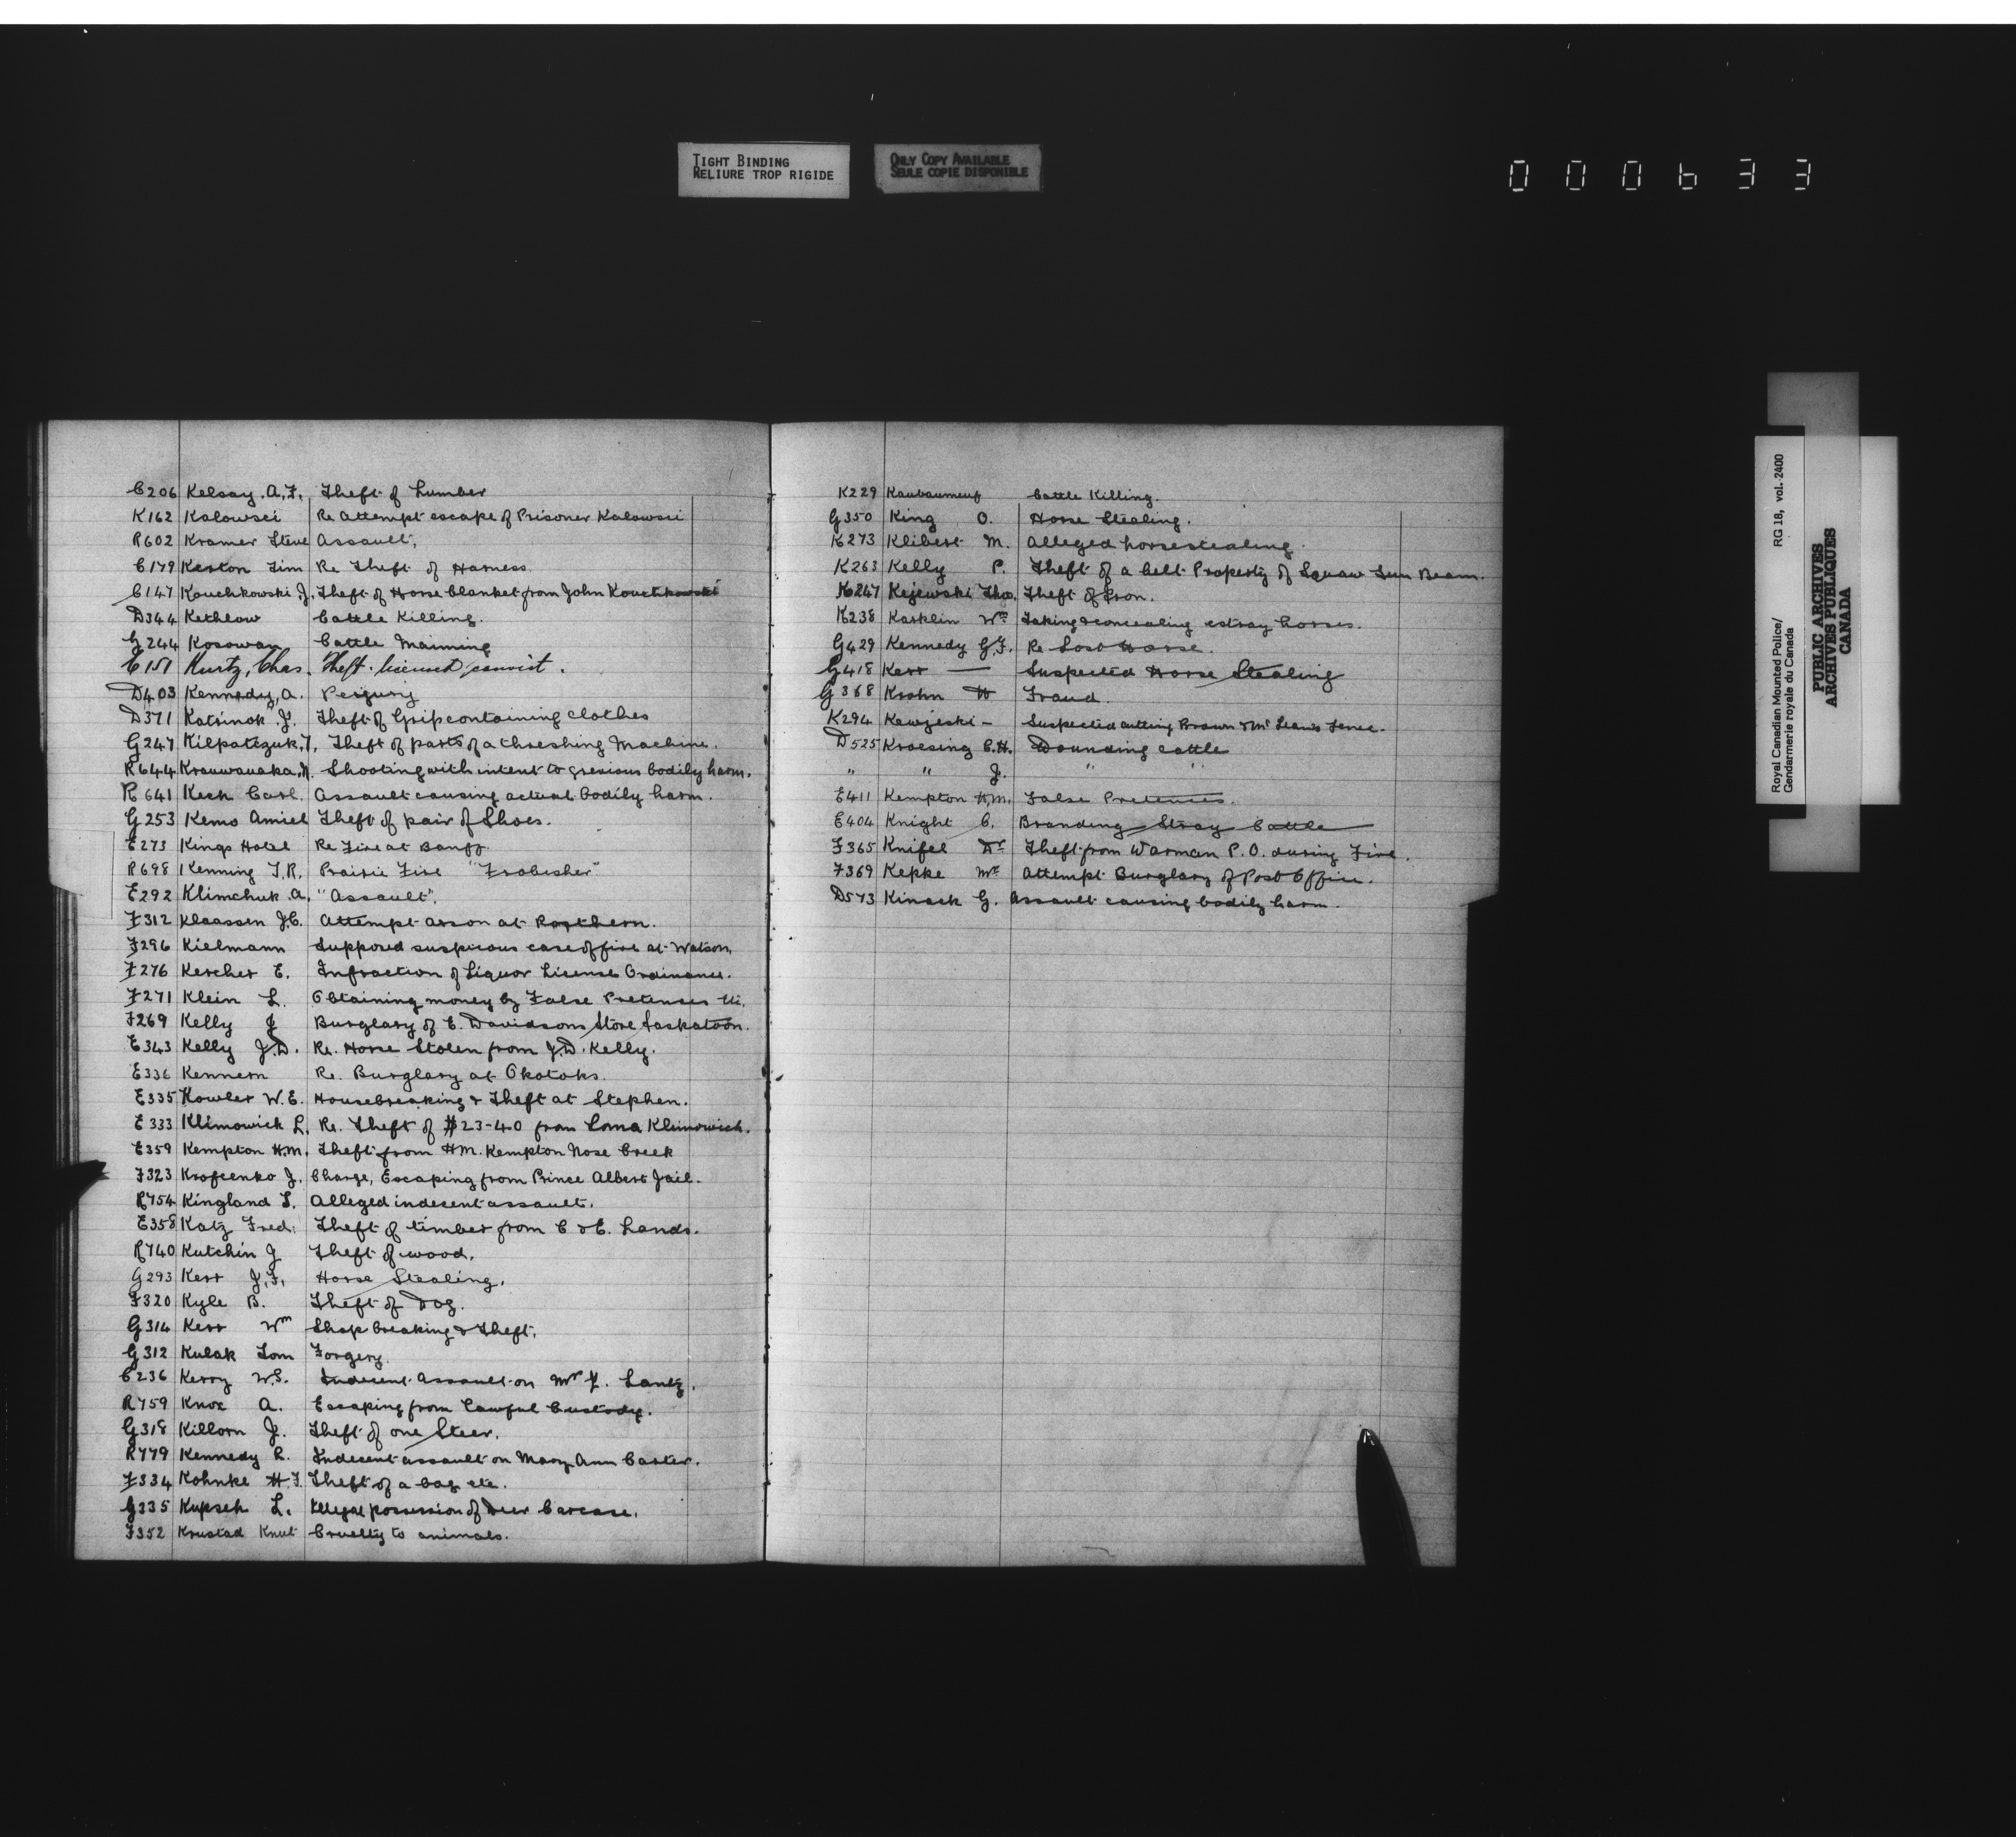 TIGHT BINDING
RELIURE TROP RIGIDE
ONLY COPY AVAILABLE
SEULE COPIE DISPONIBLE
000633
C206 Kelsay. A.F. Theft of Lumber
K162 Kalowsci Re Attempt escape of Prisoner Kalowsci
R602 Kramer Steve Assault,
C179 Keston Jim Re Theft of Harness
C147 Kouchkowski J. Theft of Horse blanket from John Kouchkowski
D344 Kethlow Cattle Killing.
G244 Kosowan Cattle Maiming
C151 Kurtz, Chas. Theft. licensed convict.
D403 Kennedy, A. Perjury
D371 Katrinok J. Theft of Grip containing clothes
G247 Kilpatczuk, T, Theft of parts of a threshing Machine.
R644 Krauwanaka, N. Shooting with intent to grevious bodily harm.
R641 Kesh Carl. Assault causing actual bodily harm.
G253 Kemo Amiel Theft of pair of Shoes.
E273 Kings Hotel Re Fire at Banff.
R698 Kenning T.R. Prairie Fire "Frobisher"
E292 Klimchuk. A, "Assault".
F312 Klaassen J.C. Attempt arson at Rosthern.
F296 Kielmann Supposed suspicous case of fire at Watson,
F276 Kercher E. Infraction of Liquor License Ordinance.
F271 Klein L. Obtaining money by False Pretenses
F269 Kelly J Burglary of E. Davidsons Store Saskatoon.
E343 Kelly J.D. Re. Horse Stolen from J.D. Kelly.
E336 Kennern Re. Burglary at Okotoks.
E335 Kowler W.E. Housebreaking & Theft at Stephen.
E333 Klimowich L. Re. Theft of $23-40 from Lona Klimowich.
E359 Kempton H.M. Theft from H.M. Kempton Nose Creek
F323 Krofcenko J. Charge, Escaping from Prince Albert Jail.
R754 Kingland L. Alleged indecent assault.
E358 Katz Fred. Theft of timber from C & E. Lands.
R740 Kutchin J Theft of wood,
G293 Kerr J.F. Horse Stealing,
F320 Kyle B. Theft of Dog.
G314 Kerr Wm Shop breaking & Theft.
G312 Kulak Tom Forgery.
C236 Kerry W.S. Indecent Assault on Mr L. Lantz.
R759 Knox A. Escaping from Lawful Custody.
G318 Killorn J. Theft of one Steer.
R779 Kennedy R. Indecent assault on Mary Ann Carter.
F334 Kohnke H.F. Theft of a bag etc.
G335 Kupsch L. Illegal possession of Deer Carcase.
F352 Krustad Knut Cruelty to animals.
K229 Cattle Killing.
G350 King O. Horse Stealing.
K273 Klibert M. Alleged horsestealing.
K263 Kelly P. Theft of a belt Property of Squaw Sun Beam.
K247 Kejewski Tho. Theft of Iron.
K238 Karklin Wm Taking & concealing estray horses.
G429 Kennedy G.F. Re Lost Horse.
G418 Kerr — Suspected Horse Stealing
G368 Krohn H Fraud.
K294 Kewzeski - Suspected cutting Brown & Mc Leans Fence.
D525 Kroesing C.H. Wounding cattle
" " J. " "
E411 Kempton H.M. False Pretences.
E404 Knight C. Branding Stray Cattle
F365 Knifel Dr Theft from Warman P.O. during Fire.
F369 Kepke Mr Attempt Burglary of Post Office.
D573 Kinask G. Assault causing bodily harm.
Royal Canadian Mounted Police/
Gendarmerie royale du Canada
RG 18, vol. 2400
PUBLIC ARCHIVES
ARCHIVES PUBLIQUES
CANADA